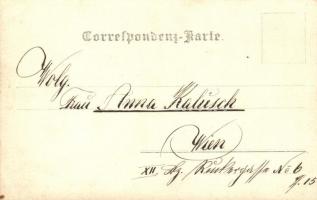 Correspondenz-Karte.
Wolg.
Frau Anna Kalusch
Wien
XII. Bg. Ruckergasse No 6